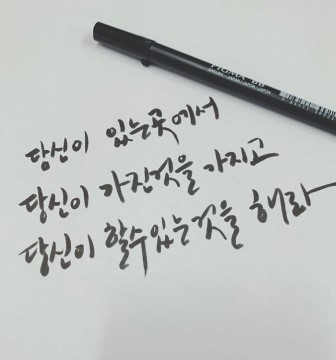 당신이 있는곳에서
당신이 가진것을 가지고
당신이 할수있는것을 해라